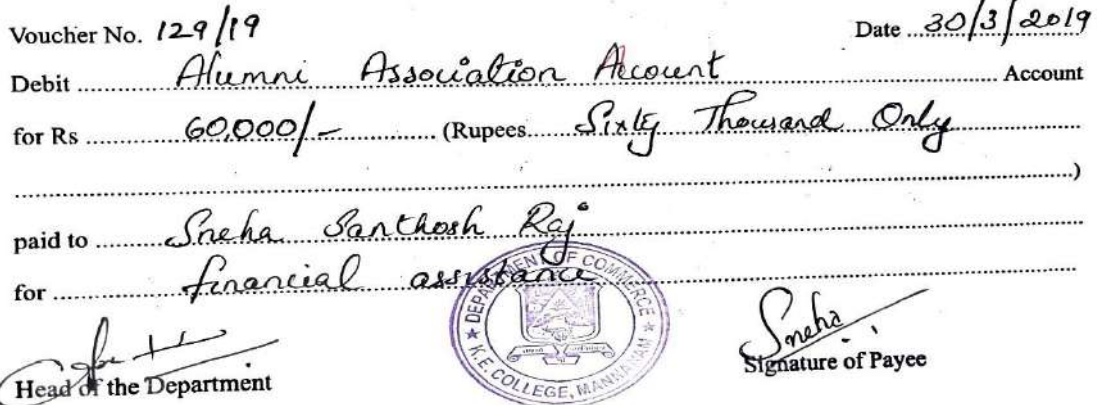 Voucher No. 129/19 Date 30/3/2019
Debit Alumni Association Account Account
for Rs 60,000/- (Rupees Sixty Thousand Only
)
paid to Sneha Santhosh Raj
for financial assistance
DEPARTMENT OF COMMERCE
K.E. COLLEGE, MANNANAM
Sneha
Head of the Department Signature of Payee